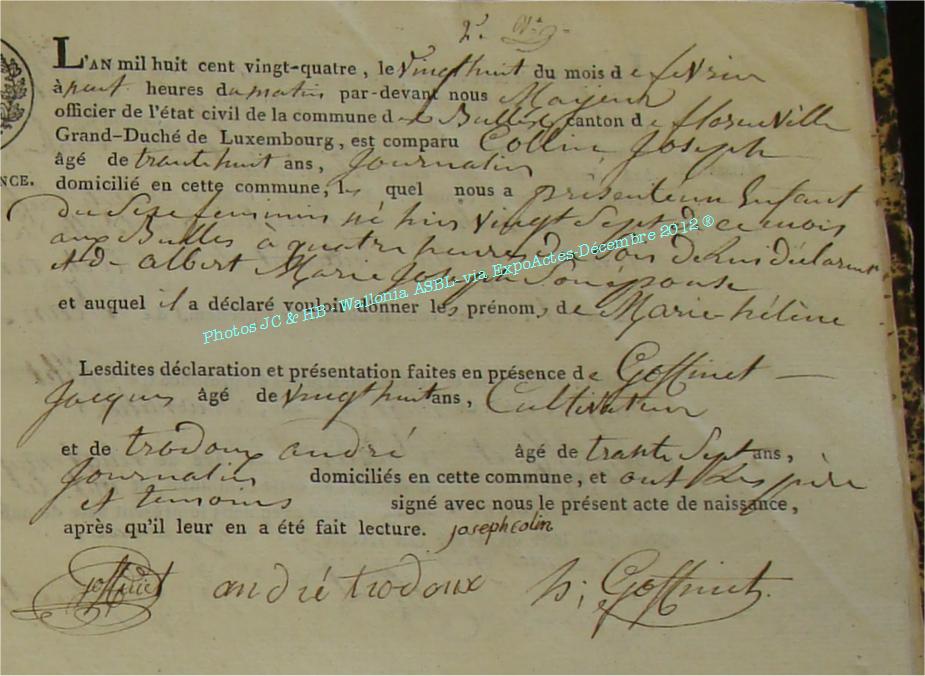 2e. No 9.
L'AN mil huit cent vingt-quatre, le vingt huit du mois de fevrier
à neuf heures du matin par-devant nous Mayeur
officier de l'état civil de la commune de Bulles, canton de florenville
Grand-Duché de Luxembourg, est comparu Collin, Joseph
âgé de trante huit ans, Journalier
NCE. domicilié en cette commune, le quel nous a présenté un Enfant
du Sexe feminin né hier vingt Sept de ce mois
aux Bulles à quatre heures de Soir de lui déclarent
et de albert Marie Joseph Son épouse
et auquel il a déclaré vouloir donner les prénoms de Marie-hélène
Photos JC & HB - Wallonia ASBL-via ExpoActes-Décembre 2012 ®
Lesdites déclaration et présentation faites en présence de Goffinet
Jacques âgé de vingt huit ans, Cultivateur
et de trodoux andré âgé de trante Sept ans,
Journalier domiciliés en cette commune, et ont les père
et temoins signé avec nous le présent acte de naissance,
après qu'il leur en a été fait lecture. joseph colin
Goffinet andré trodoux h; Goffinet.